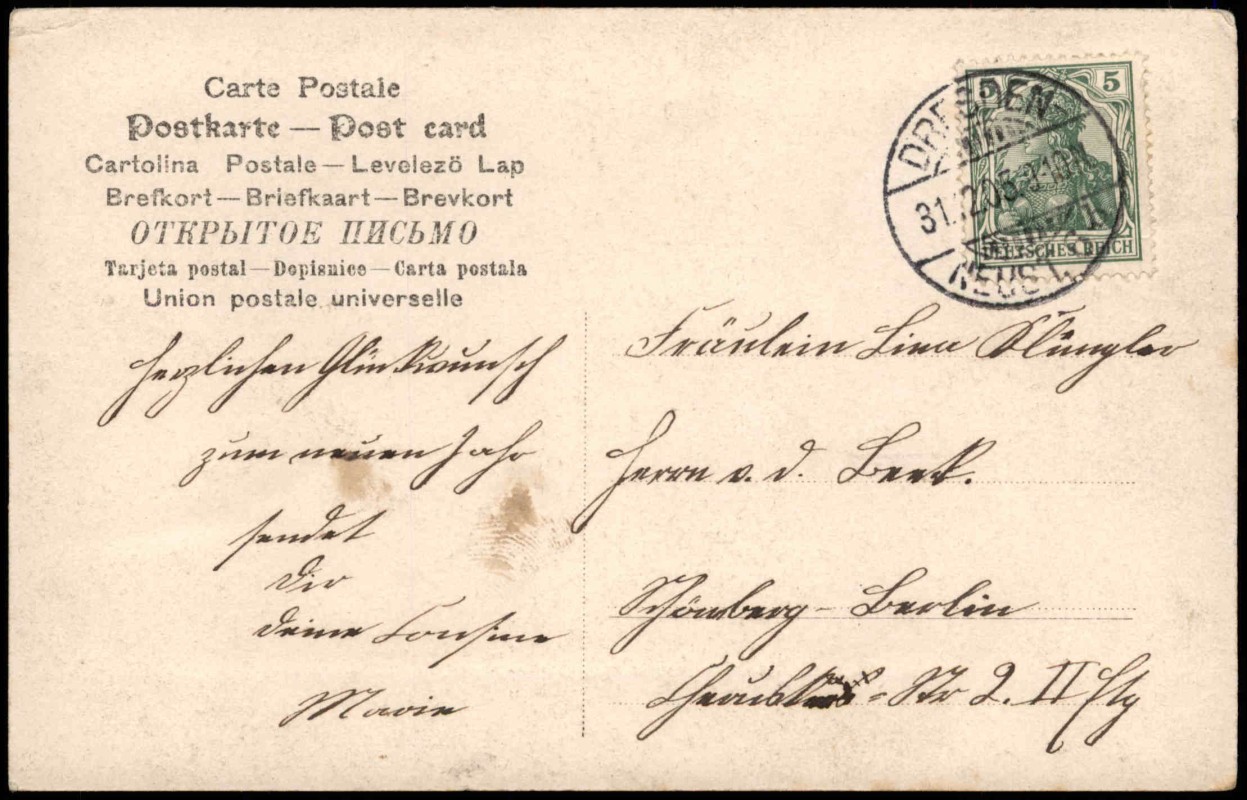 Carte Postale
Postkarte — Post card
Cartolina Postale — Levelezö Lap
Brefkort — Briefkaart — Brevkort
ОТКРЫТОЕ ПИСЬМО
Tarjeta postal — Dopisnice — Carta postala
Union postale universelle
5 5
DEUTSCHES REICH
DRESDEN
31.12.05
NEUST.
Herzlichen Glückwunsch
zum neuen Jahr
sendet
Dir
deine Cousine
Marie
Fräulein Lina
Herrn v. d. Beek.
Schönberg - Berlin
Str 2. II Etg